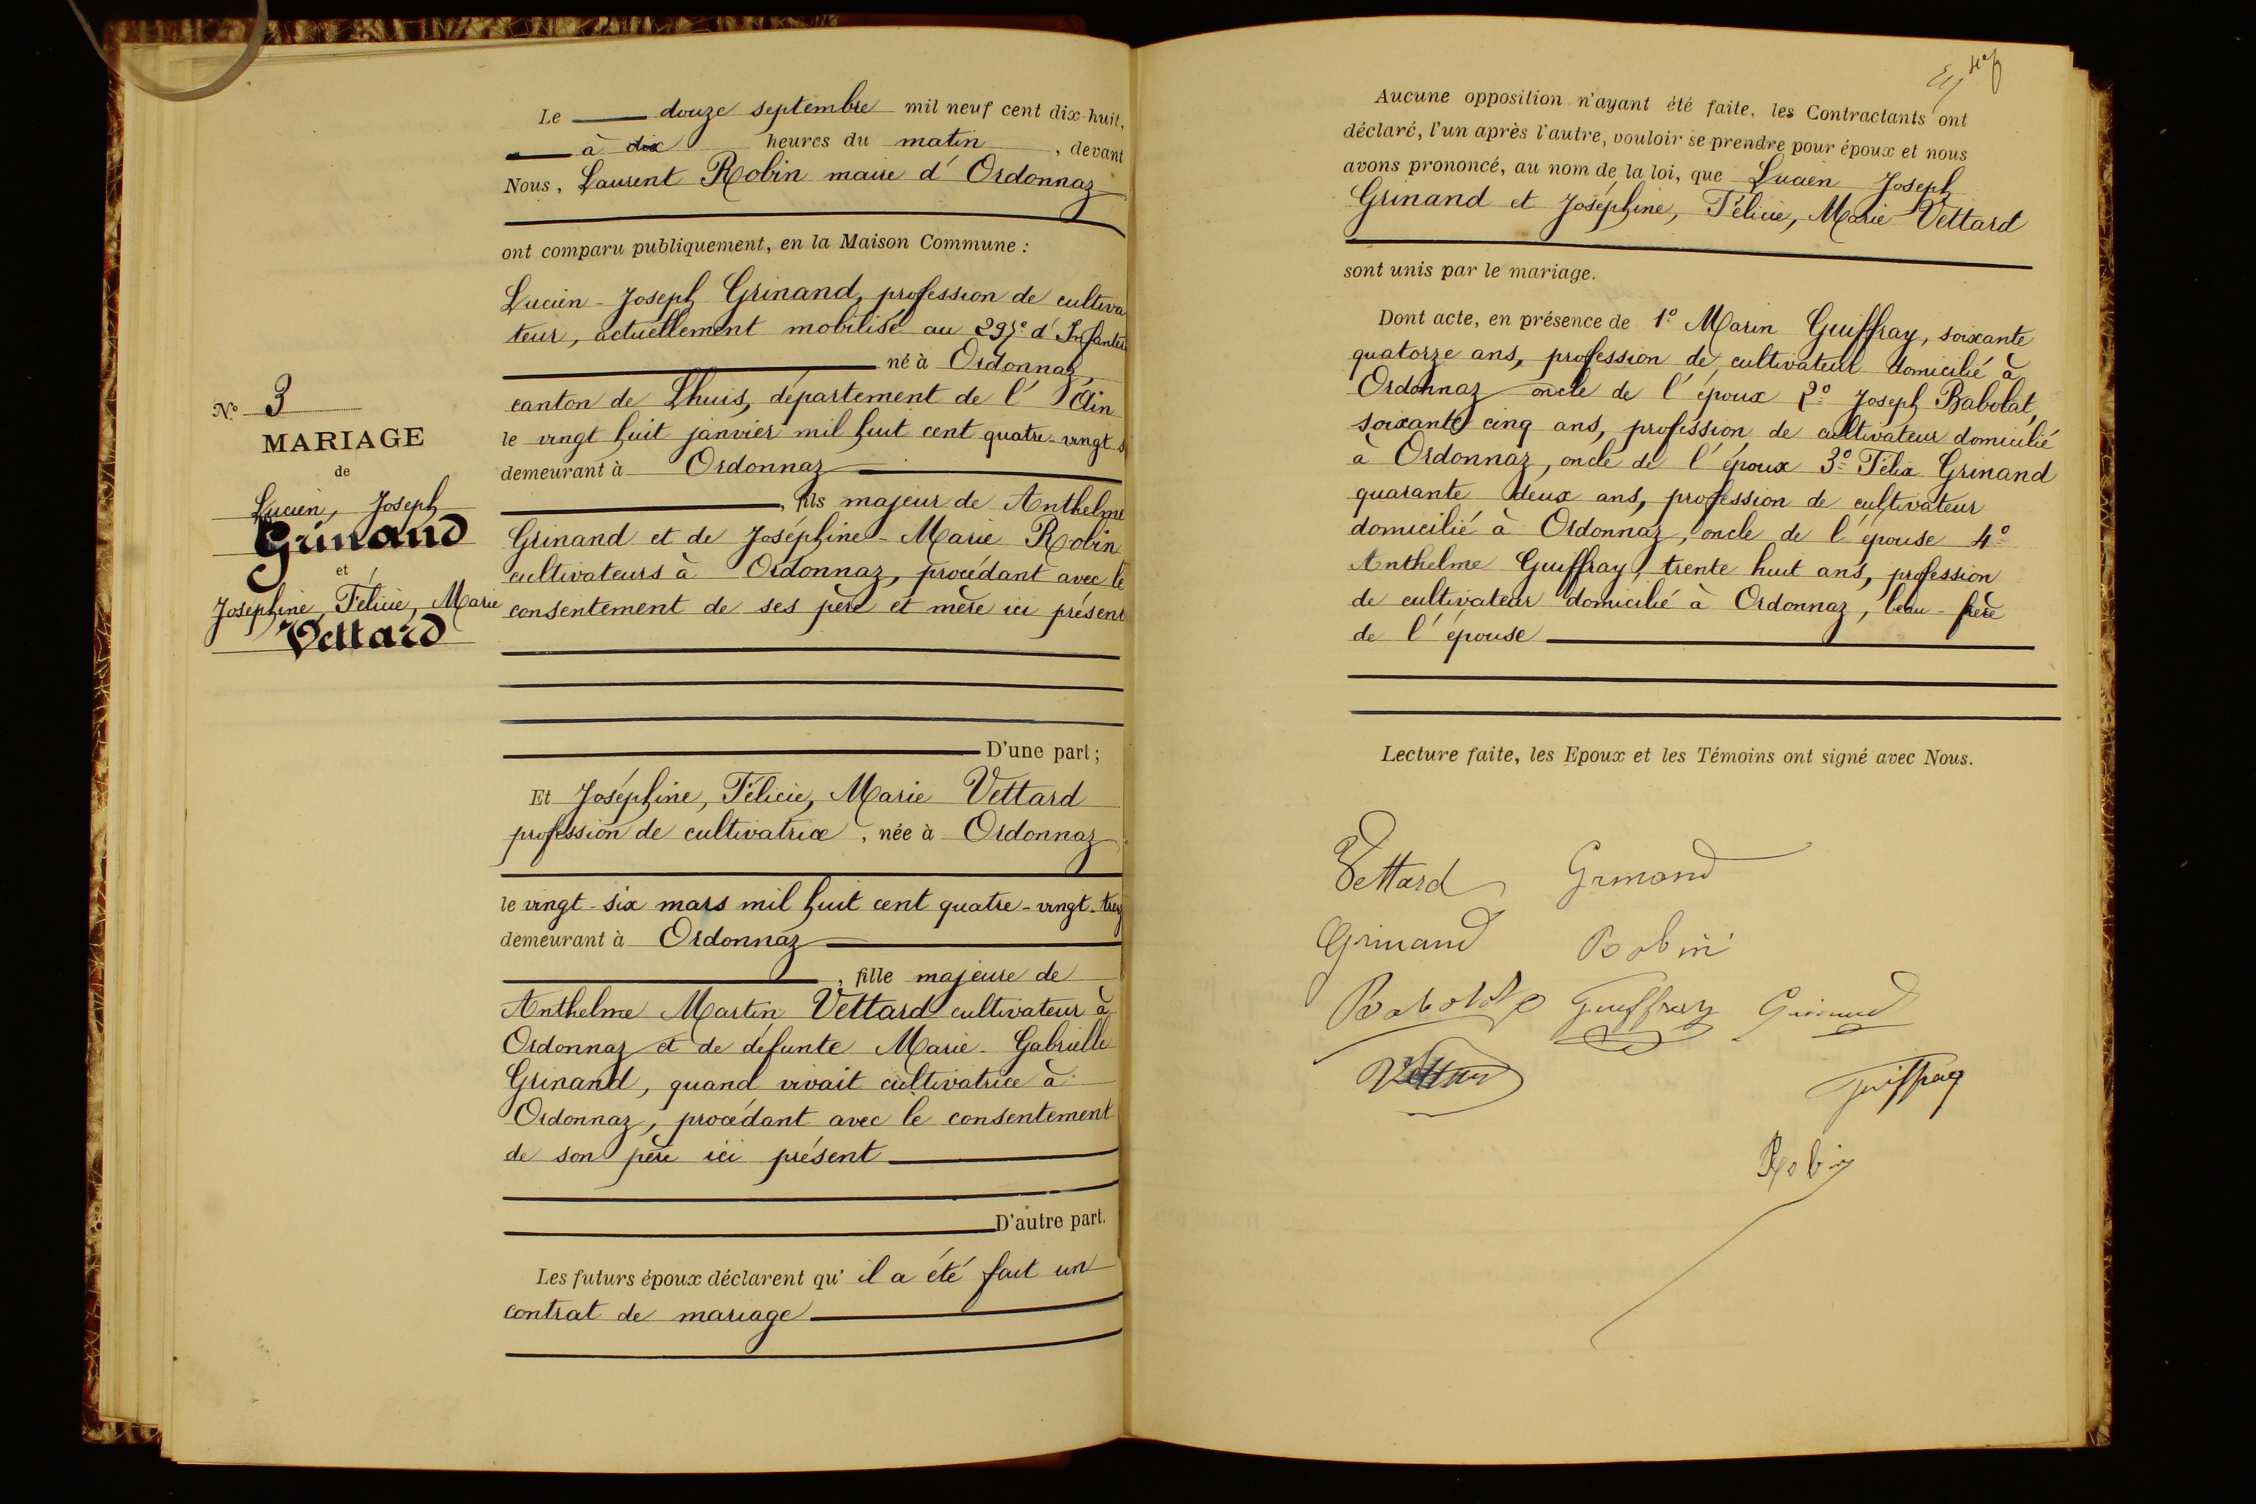 N.° 3
MARIAGE
de
Lucien, Joseph
Grinand
et
Joséphine, Félicie, Marie
Vettard
Le douze septembre mil neuf cent dix-huit,
à dix heures du matin, devant
Nous, Laurent Robin maire d'Ordonnaz
ont comparu publiquement, en la Maison Commune :
Lucien-Joseph Grinand, profession de cultiva
teur, actuellement mobilisé au 297e d'Infanterie
né à Ordonnaz,
canton de Lhuis, département de l'Ain
le vingt huit janvier mil huit cent quatre-vingt s
demeurant à Ordonnaz
, fils majeur de Anthelme
Grinand et de Joséphine-Marie Robin
cultivateurs à Ordonnaz, procédant avec le
consentement de ses père et mère ici présent
D'une part ;
Et Joséphine, Félicie, Marie Vettard
profession de cultivatrice, née à Ordonnaz
le vingt-six mars mil huit cent quatre-vingt-
demeurant à Ordonnaz
, fille majeure de
Anthelme Martin Vettard cultivateur à
Ordonnaz et de défunte Marie-Gabrielle
Grinand, quand vivait cultivatrice à
Ordonnaz, procédant avec le consentement
de son père ici présent
D'autre part.
Les futurs époux déclarent qu'il a été fait un
contrat de mariage
Aucune opposition n'ayant été faite, les Contractants ont
déclaré, l'un après l'autre, vouloir se prendre pour époux et nous
avons prononcé, au nom de la loi, que Lucien Joseph
Grinand et Joséphine, Félicie, Marie Vettard
sont unis par le mariage.
Dont acte, en présence de 1° Marin Guiffray, soixante
quatorze ans, profession de cultivateur domicilié à
Ordonnaz oncle de l'époux 2° Joseph Babolat,
soixante cinq ans, profession de cultivateur domicilié
à Ordonnaz, oncle de l'époux 3° Félix Grinand
quarante deux ans, profession de cultivateur
domicilié à Ordonnaz, oncle de l'épouse 4°
Anthelme Guiffray, trente huit ans, profession
de cultivateur domicilié à Ordonnaz, beau-frère
de l'épouse
Lecture faite, les Epoux et les Témoins ont signé avec Nous.
Vettard Grinand
Grinand Robin
Babolat Guiffray Grinand
Vettard
Guiffray
Robin